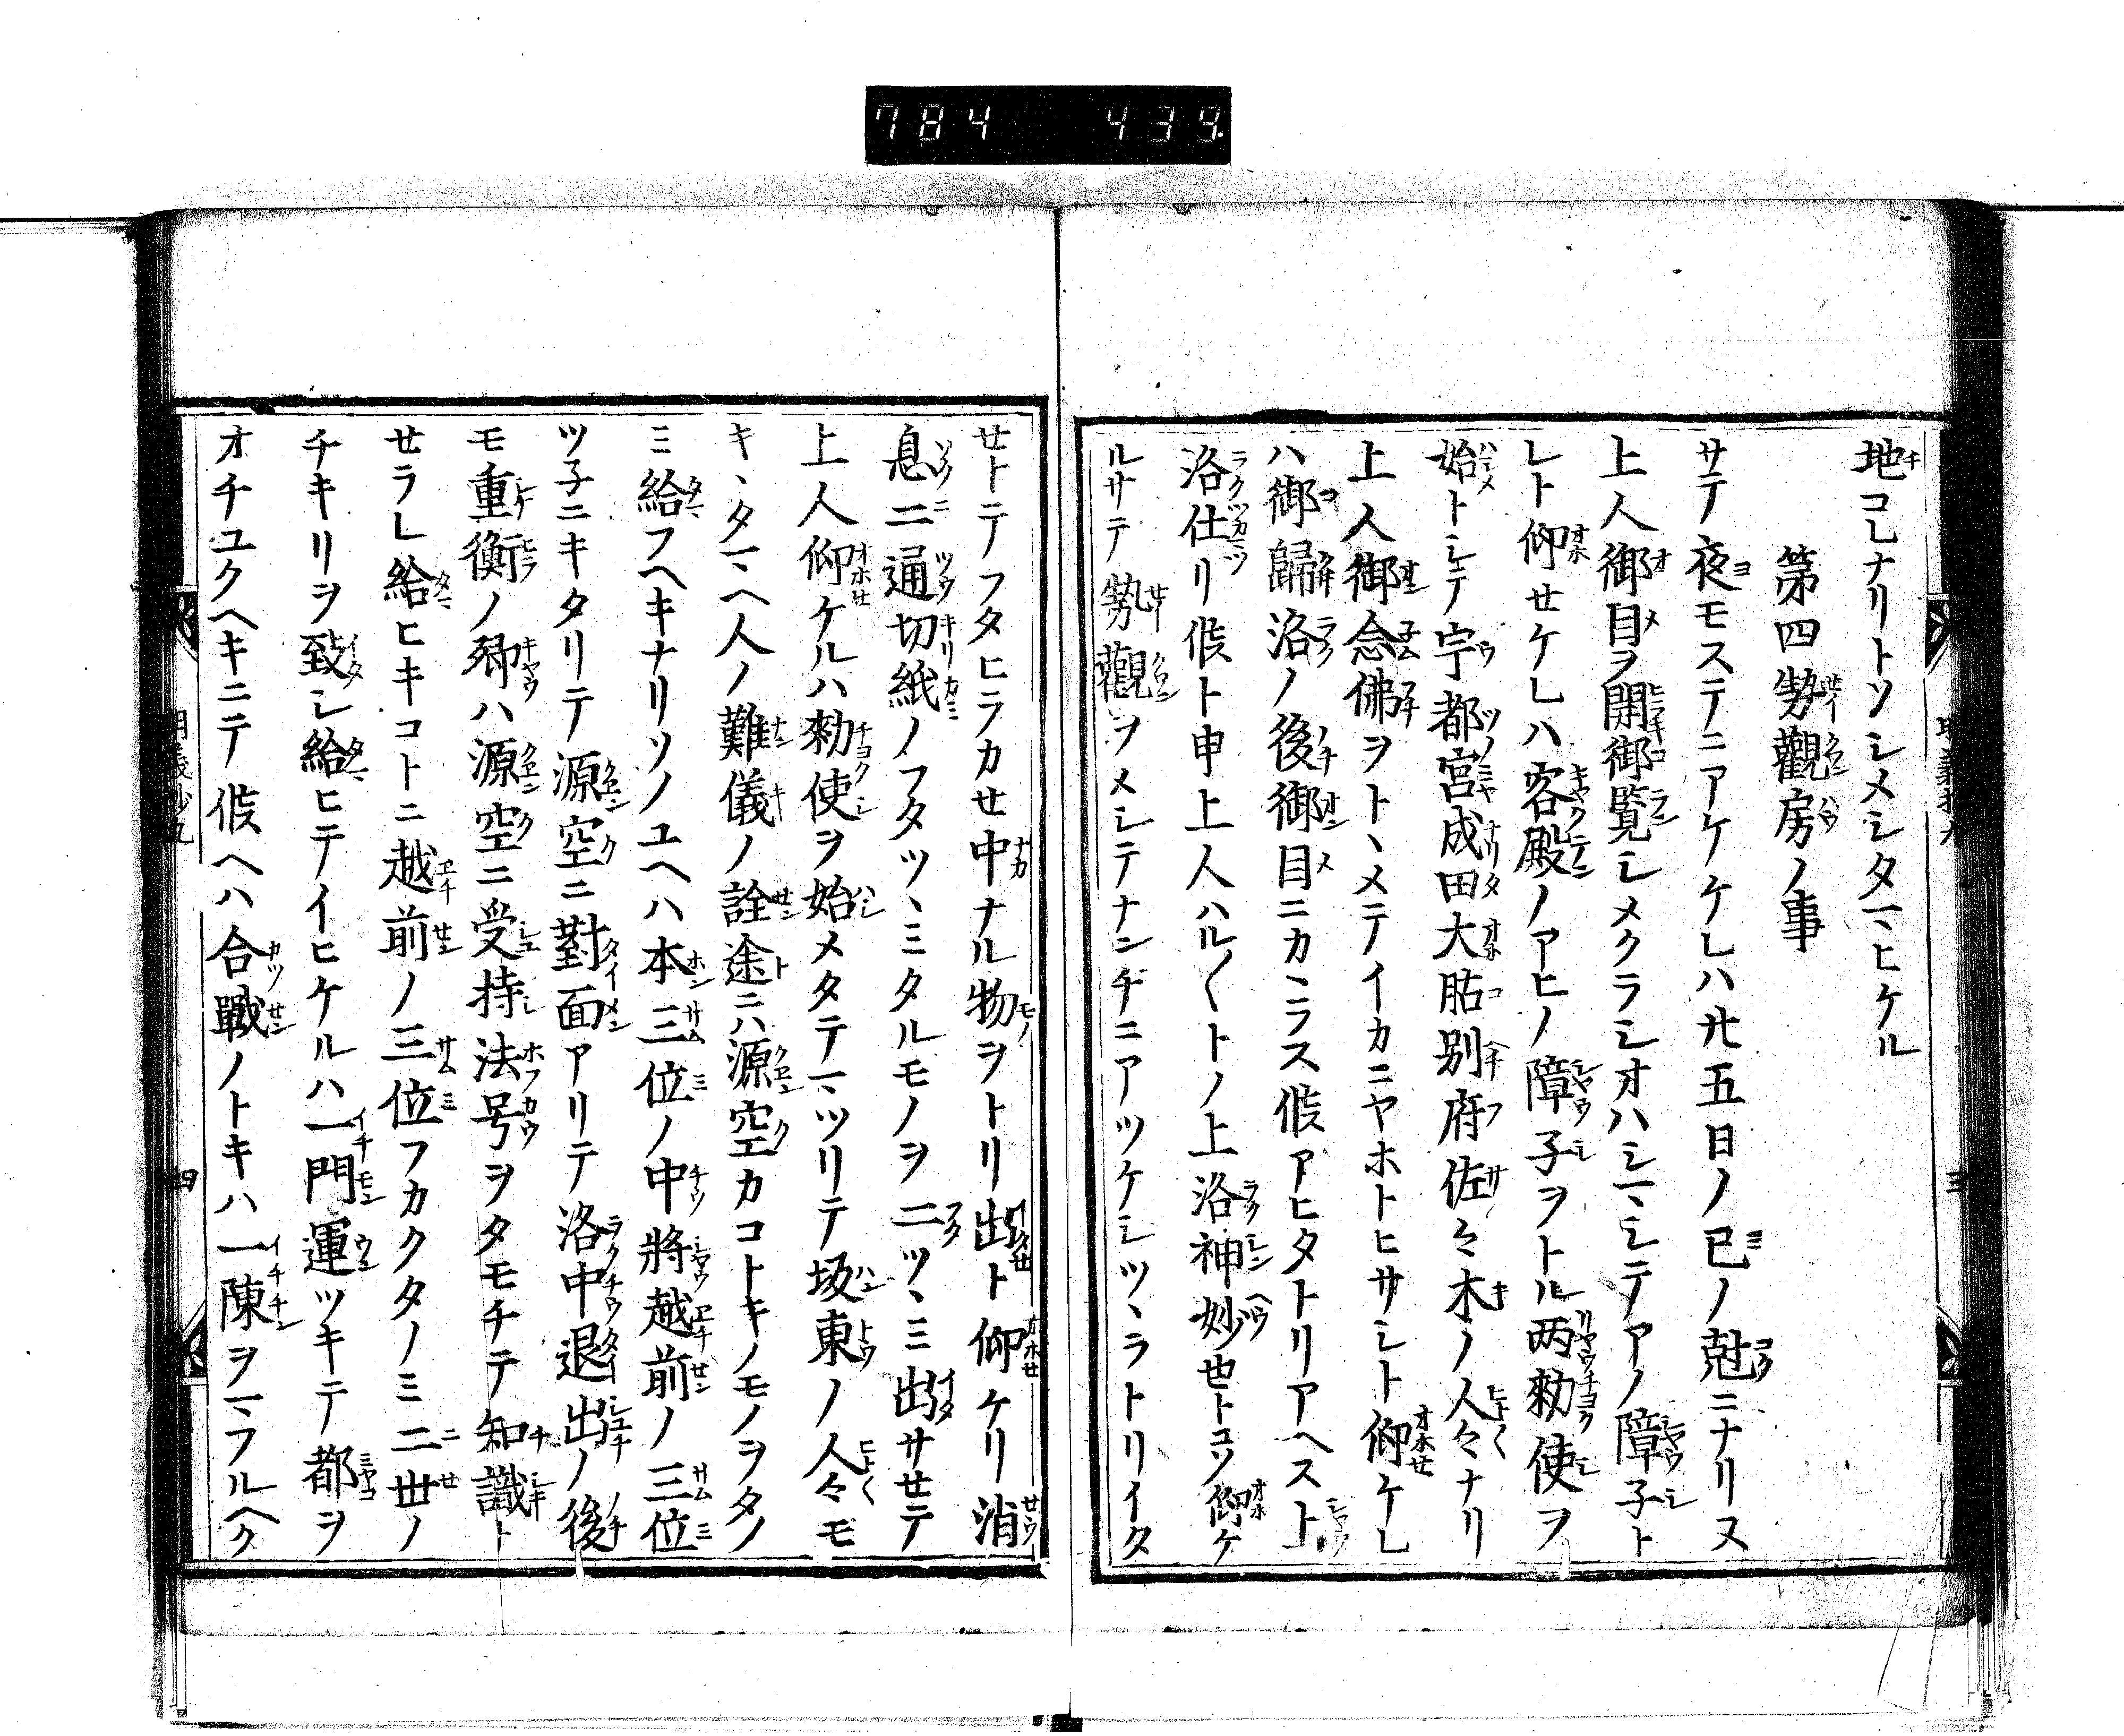 784 439
地コレナリトソシメシタマヒケル
第四勢觀房ノ事
サテ夜モステニアケケレハ廿五日ノ巳ノ尅ニナリヌ
上人御目ヲ開御覧シメクラシオハシマシテアノ障子ト
レト仰セケレハ客殿ノアヒノ障子ヲトル両勅使ヲ
始トシテ宇都宮成田大胡別府佐々木ノ人々ナリ
上人御念佛ヲトヽメテイカニヤホトヒサシト仰ケレ
ハ御歸洛ノ後御目ニカヽラス候アヒタトリアヘス上
洛仕リ候ト申上人ハル〱トノ上洛神妙也トコソ仰ケ
ルサテ勢觀ヲメシテナンヂニアツケシツヽラトリイタ
セトテフタヒラカセ中ナル物ヲトリ出ト仰ケリ消
息二通切紙ノフタツヽミタルモノヲ二ツヽミ出サセテ
上人仰ケルハ勅使ヲ始メタテマツリテ坂東ノ人々モ
キヽタマヘ人ノ難儀ノ詮途ニハ源空カコトキノモノヲタノ
ミ給フヘキナリソノユヘハ本三位ノ中將越前ノ三位
ツ子ニキタリテ源空ニ對面アリテ洛中退出ノ後
モ重衡ノ卿ハ源空ニ受持法号ヲタモチテ知識ト
セラレ給ヒキコトニ越前ノ三位フカクタノミ二世ノ
チキリヲ致シ給ヒテイヒケルハ一門運ツキテ都ヲ
オチユクヘキニテ候ヘハ合戰ノトキハ一陳ヲマフルヘク
三
四